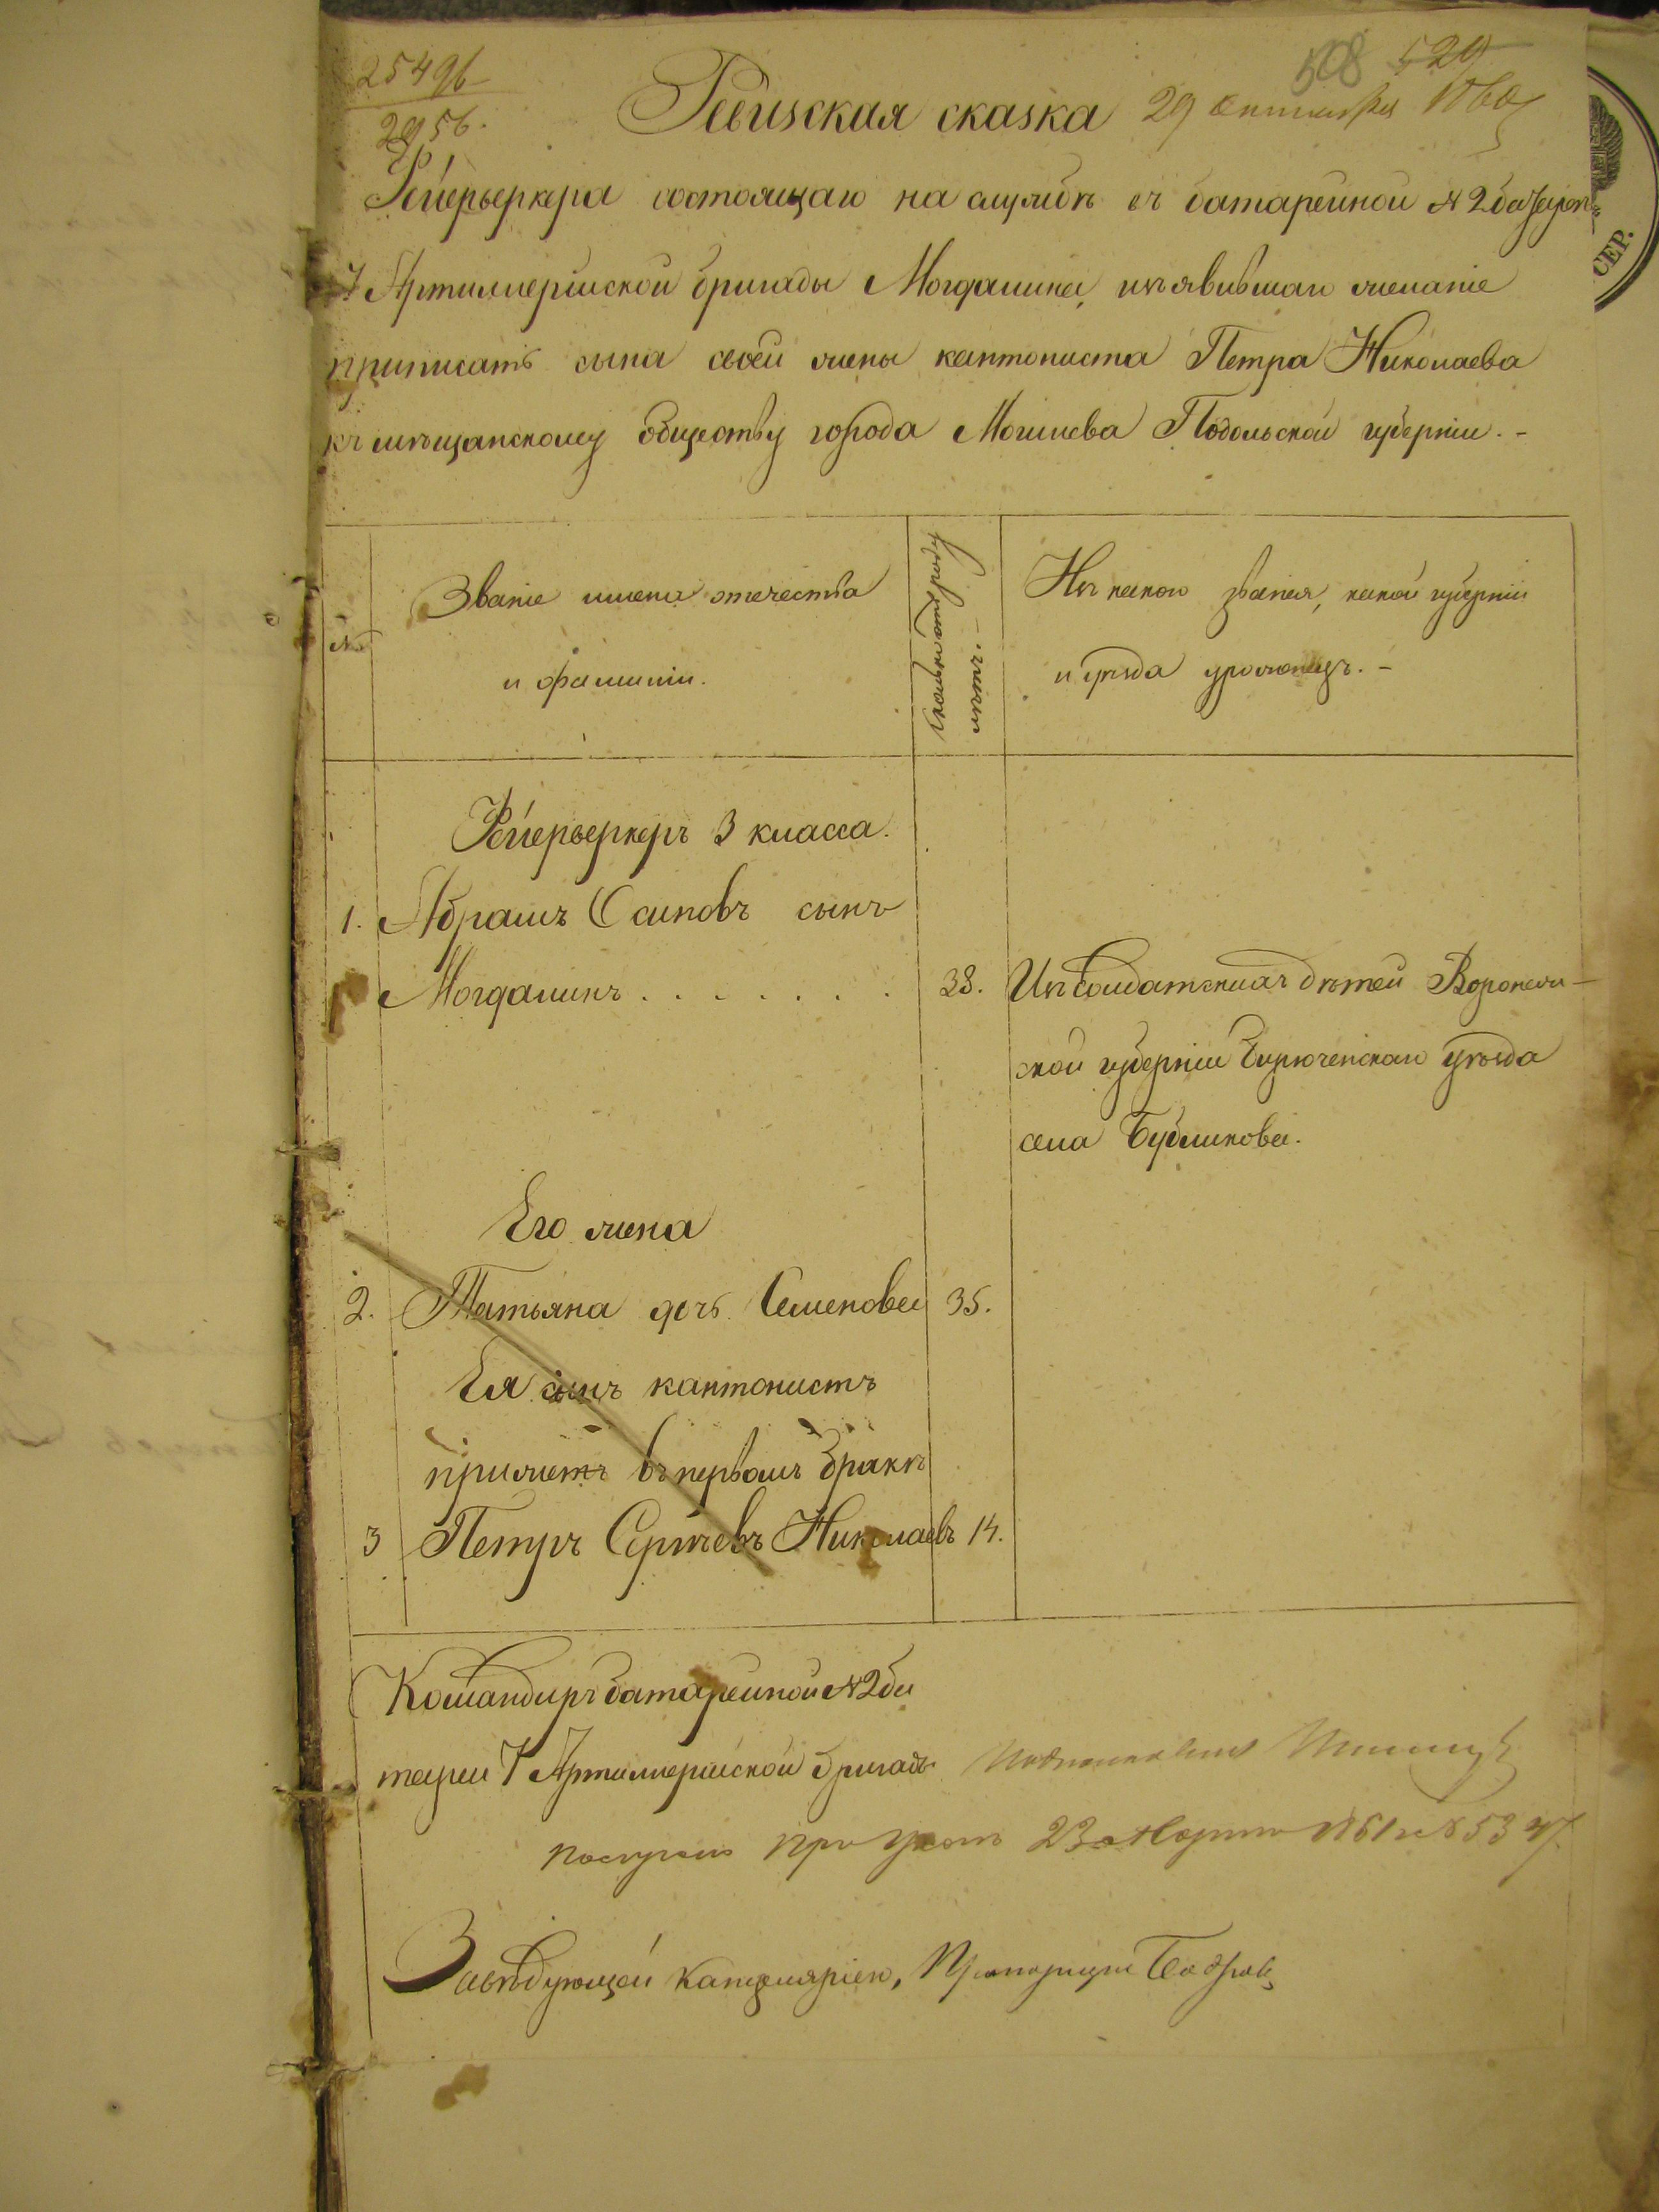 25496
2956.
508 529
Ревизская сказка 29 Октября 1860
Фейерверкера состоящаго на службѣ въ батарейной № 2 батареи
7 Артиллерійской бригады Могдалина, изъявившаго желаніе
приписать сына своей жены кантониста Петра Николаева
къ мѣщанскому обществу города Могилева Подольской губерніи. -
СЕР.
№
Званіе имена отчества
и фамиліи.
Сколько отъ роду
лѣтъ. -
Изъ какого званія, какой губерніи
и уѣзда уроженецъ. -
Фейерверкеръ 3 класса.
1. Абрамъ Осиповъ сынъ
Могдалинъ . . . . . . . 38. Изъ солдатскихъ дѣтей Воронеж-
ской губерніи Бирюченскаго уѣзда
села Бубликова.
Его жена
2. Татьяна дочь Семенова 35.
Ея сынъ кантонистъ
прижитъ въ первомъ бракѣ
3 Петръ Сергѣевъ Николаевъ 14.
Командиръ батарейной № 2 ба
тареи 7 Артиллерійской бригады Подполковникъ
при указѣ 23 Марта 1861 г № 5347
Завѣдующей Канцеляріею, Прапорщикъ